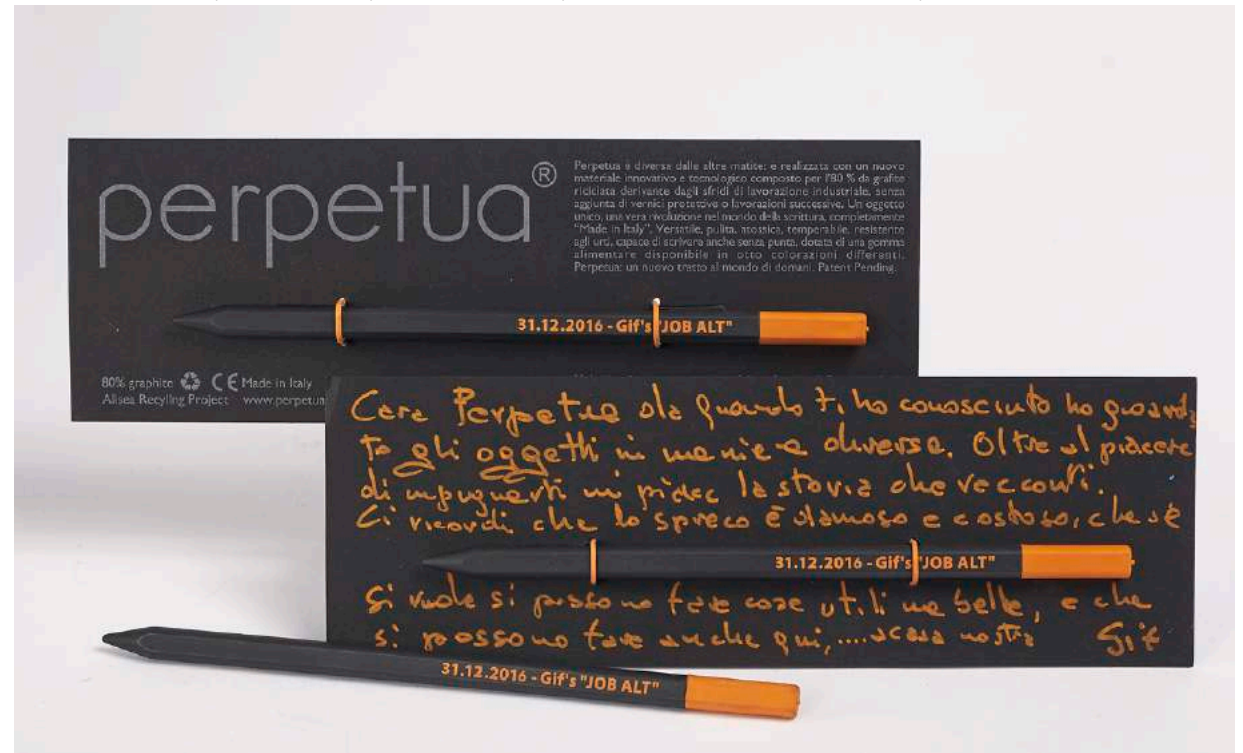 perpetua®
Perpetua è diversa dalle altre matite: è realizzata con un nuovo
materiale innovativo e tecnologico composto per l'80 % da grafite
riciclata derivante dagli sfridi di lavorazione industriale, senza
aggiunta di vernici protettive o lavorazioni successive. Un oggetto
unico, una vera rivoluzione nel mondo della scrittura, completamente
"Made in Italy". Versatile, pulita, atossica, temperabile, resistente
agli urti, capace di scrivere anche senza punta, dotata di una gomma
alimentare disponibile in otto colorazioni differenti.
Perpetua: un nuovo tratto al mondo di domani. Patent Pending.
31.12.2016 - Gif's "JOB ALT"
80% graphite CE Made in Italy
Alisea Recyling Project www.perpetua
Cara Perpetua da quando ti ho conosciuto ho guarda
to gli oggetti in maniera diversa. Oltre al piacere
di impugnarti mi piace la storia che racconti.
Ci ricordi che lo spreco è dannoso e costoso, che se
31.12.2016 - Gif's "JOB ALT"
si vuole si possono fare cose utili ma belle, e che
si possono fare anche qui,....a casa nostra Gif
31.12.2016 - Gif's "JOB ALT"